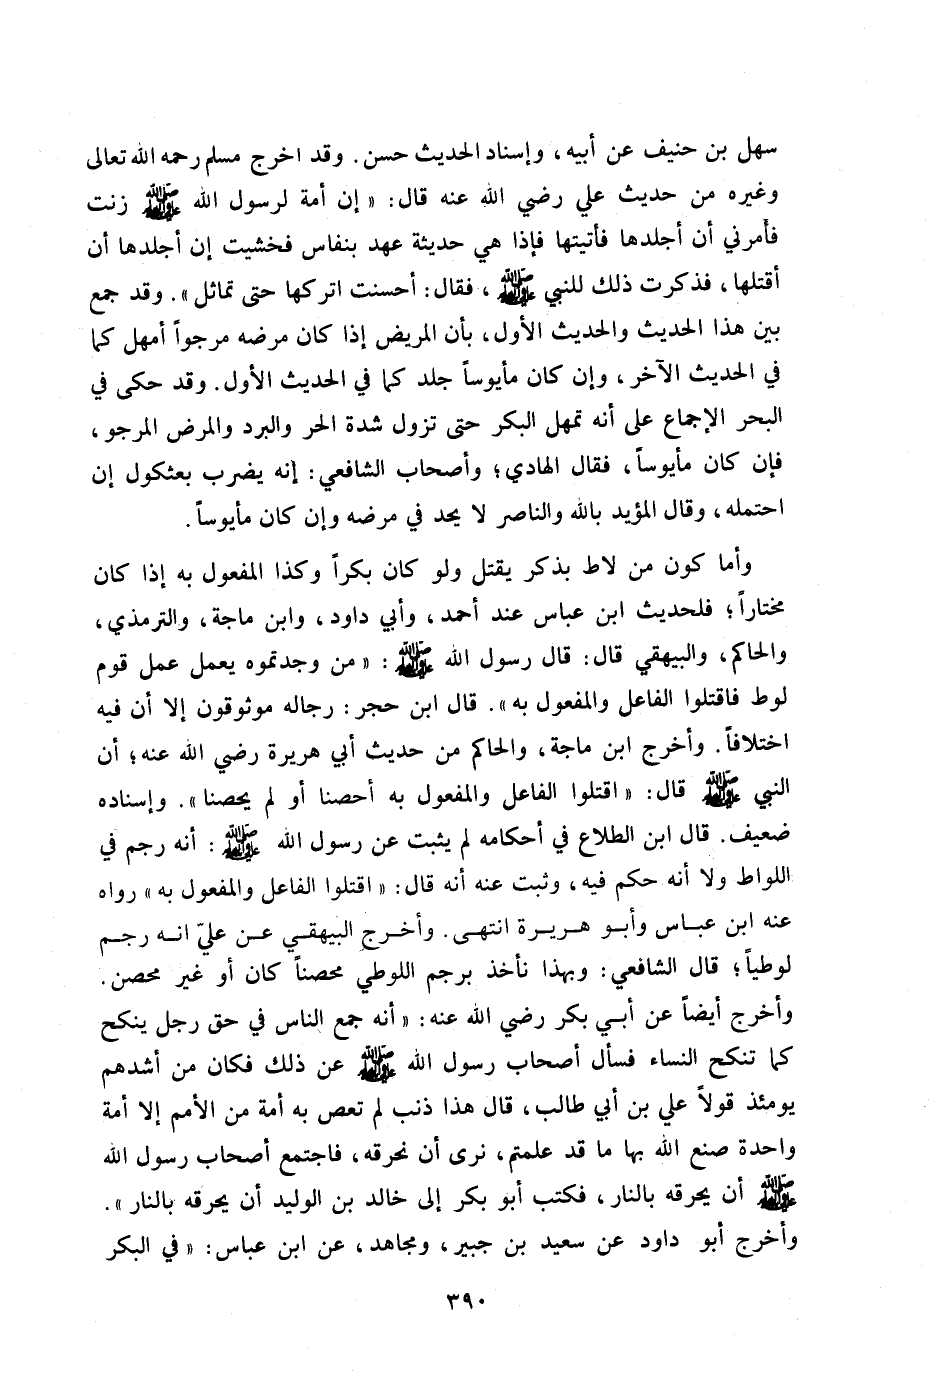 سهل بن حنيف عن أبيه، وإسناد الحديث حسن. وقد اخرج مسلم رحمه الله تعالى
وغيره من حديث علي رضي الله عنه قال: « إن أمة لرسول الله ﷺ زنت
فأمرني أن أجلدها فأتيتها فإذا هي حديثة عهد بنفاس فخشيت إن أجلدها أن
أقتلها، فذكرت ذلك للنبي ﷺ، فقال: أحسنت اتركها حتى تماثل». وقد جمع
بين هذا الحديث والحديث الأول، بأن المريض إذا كان مرضه مرجواً أمهل كما
في الحديث الآخر، وإن كان مأيوساً جلد كما في الحديث الأول. وقد حكى في
البحر الإجماع على أنه تمهل البكر حتى تزول شدة الحر والبرد والمرض المرجو،
فإن كان مأيوساً، فقال الهادي؛ وأصحاب الشافعي: إنه يضرب بعثكول إن
احتمله، وقال المؤيد بالله والناصر لا يحد في مرضه وإن كان مأيوساً.
وأما كون من لاط بذكر يقتل ولو كان بكراً وكذا المفعول به إذا كان
مختاراً؛ فلحديث ابن عباس عند أحمد، وأبي داود، وابن ماجة، والترمذي،
والحاكم، والبيهقي قال: قال رسول الله ﷺ: « من وجدتموه يعمل عمل قوم
لوط فاقتلوا الفاعل والمفعول به». قال ابن حجر: رجاله موثوقون إلا أن فيه
اختلافاً. وأخرج ابن ماجة، والحاكم من حديث أبي هريرة رضي الله عنه؛ أن
النبي ﷺ قال: « اقتلوا الفاعل والمفعول به أحصنا أو لم يحصنا». وإسناده
ضعيف. قال ابن الطلاع في أحكامه لم يثبت عن رسول الله ﷺ: أنه رجم في
اللواط ولا أنه حكم فيه، وثبت عنه أنه قال: « اقتلوا الفاعل والمفعول به» رواه
عنه ابن عباس وأبو هريرة انتهى. وأخرج البيهقي عن عليّ انه رجم
لوطياً؛ قال الشافعي: وبهذا نأخذ برجم اللوطي محصناً كان أو غير محصن.
وأخرج أيضاً عن أبي بكر رضي الله عنه: « أنه جمع الناس في حق رجل ينكح
كما تنكح النساء فسأل أصحاب رسول الله ﷺ عن ذلك فكان من أشدهم
يومئذ قولاً علي بن أبي طالب، قال هذا ذنب لم تعص به أمة من الأمم إلا أمة
واحدة صنع الله بها ما قد علمتم، نرى أن نحرقه، فاجتمع أصحاب رسول الله
ﷺ أن يحرقه بالنار، فكتب أبو بكر إلى خالد بن الوليد أن يحرقه بالنار».
وأخرج أبو داود عن سعيد بن جبير، ومجاهد، عن ابن عباس: « في البكر
٣٩٠